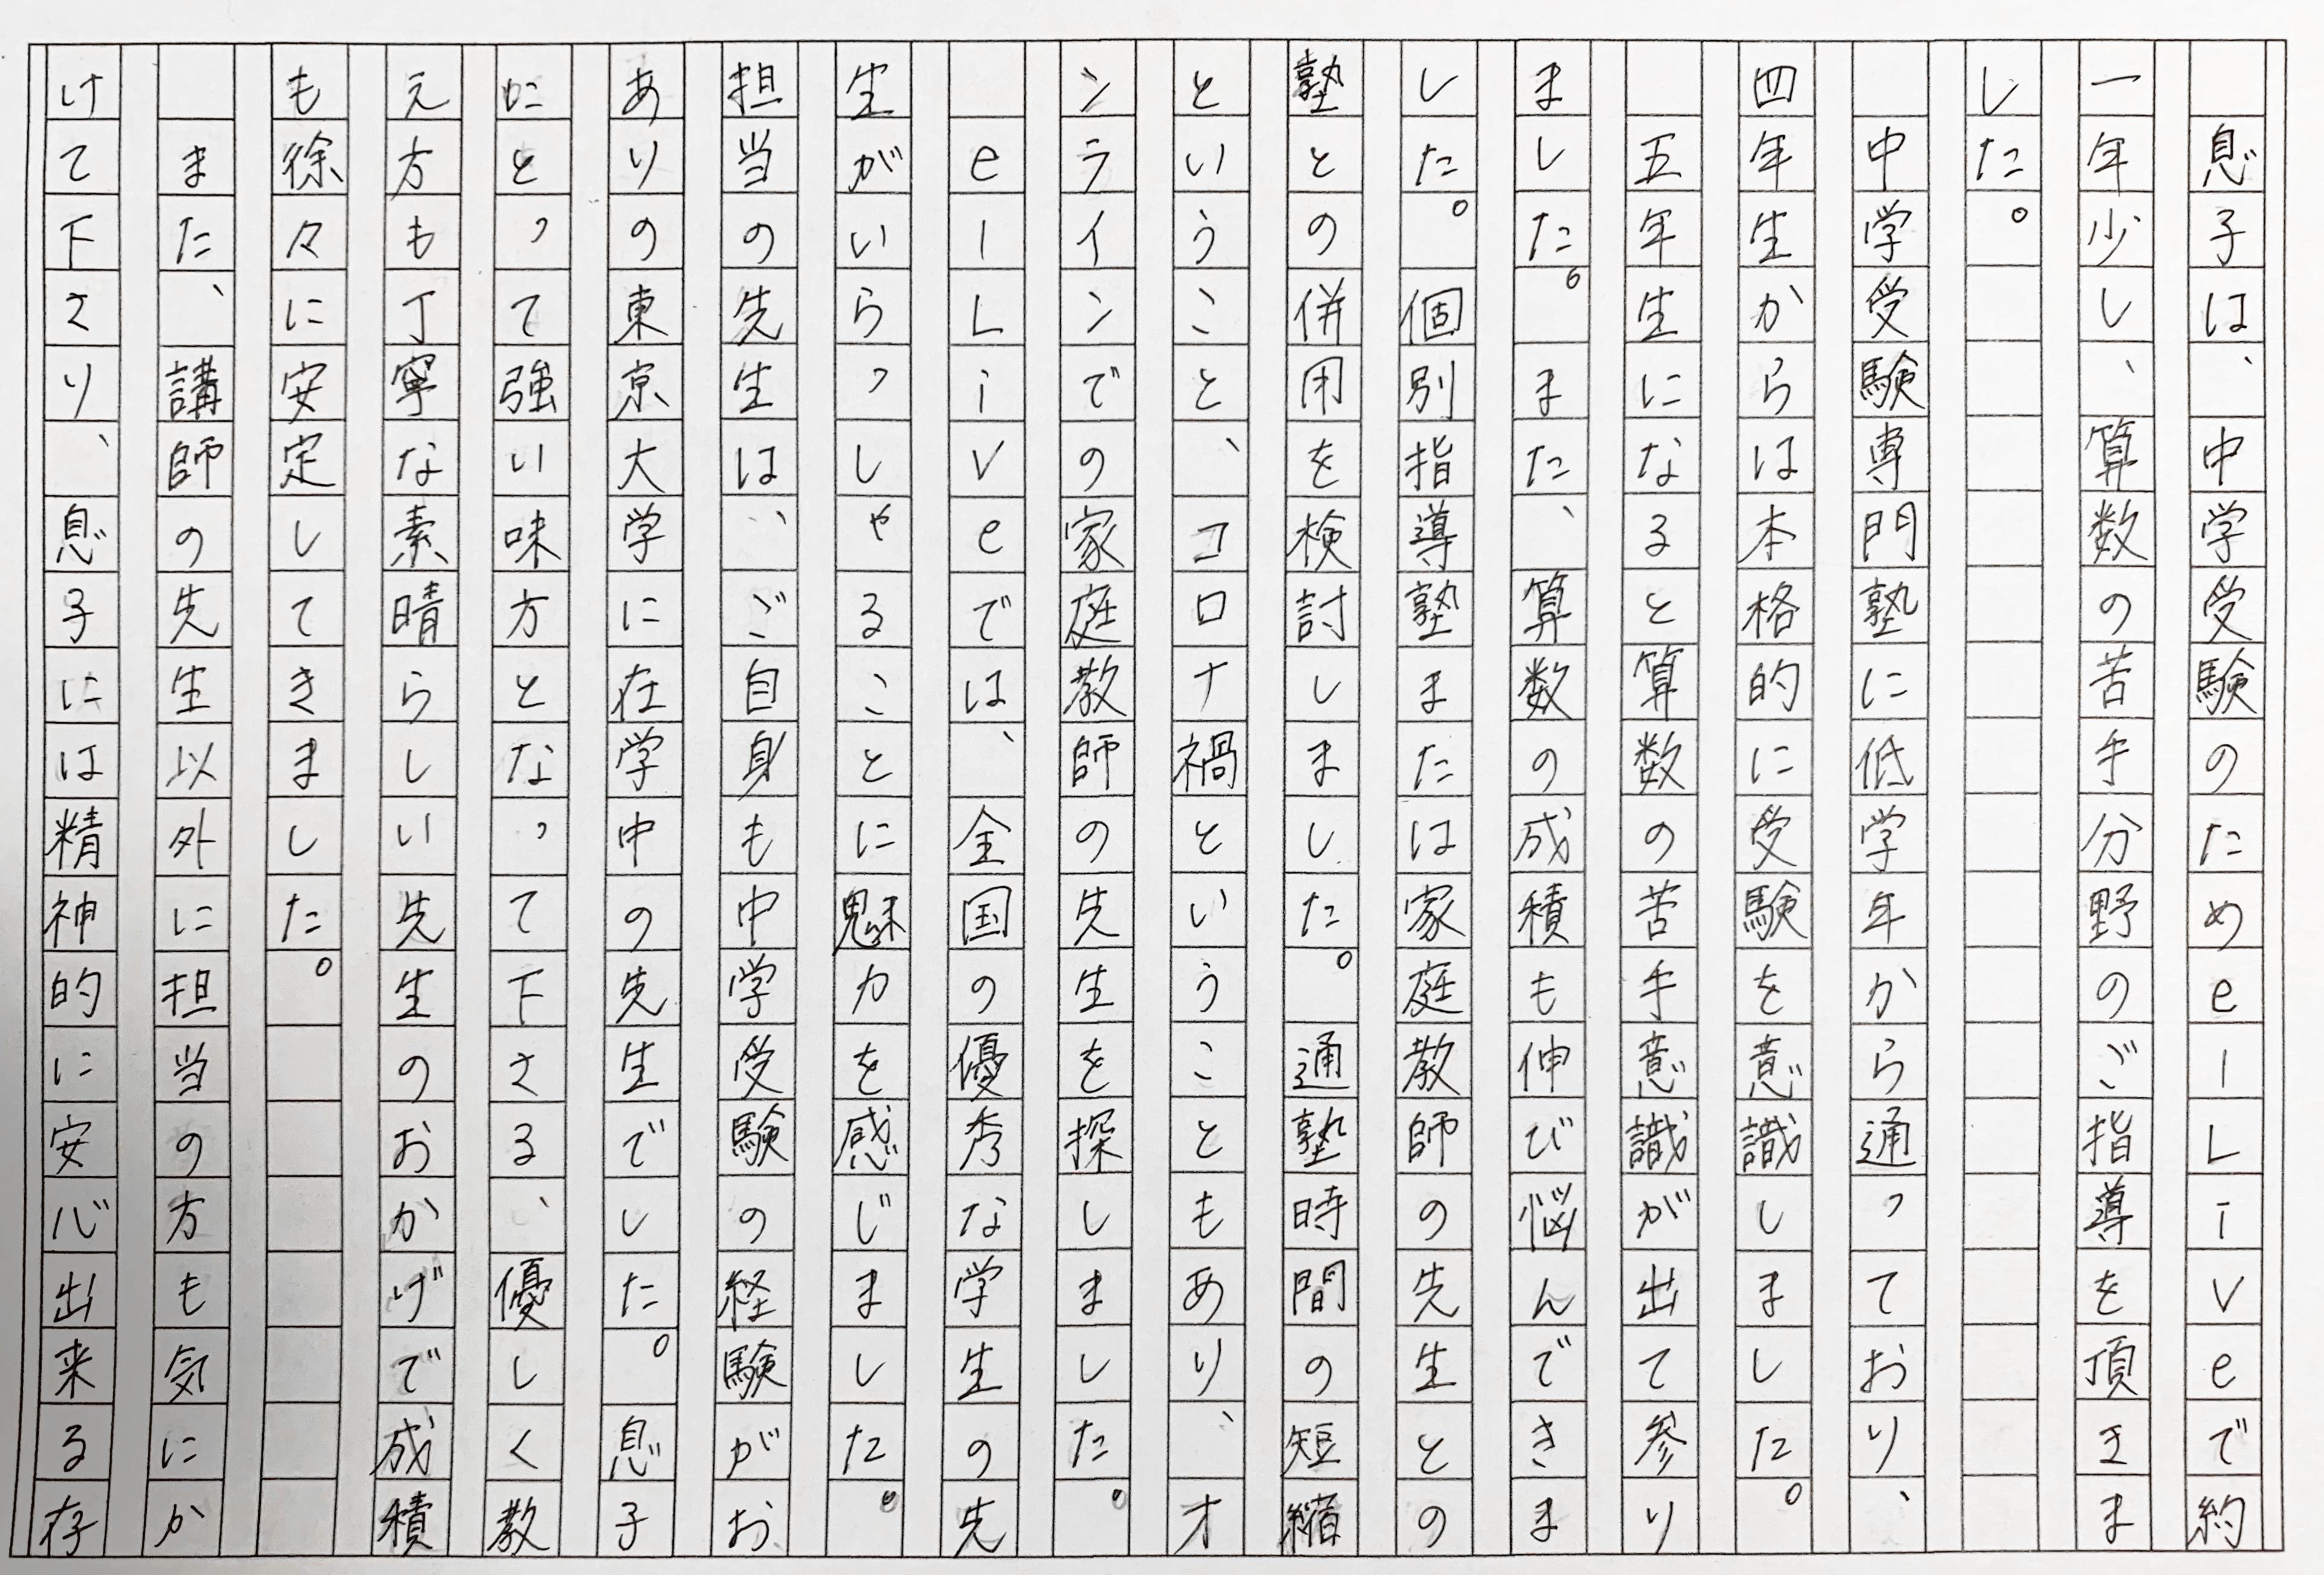 息子は、中学受験のためe－Liveで約
一年少し、算数の苦手分野のご指導を頂きま
した。
　中学受験専門塾に低学年から通っており、
四年生からは本格的に受験を意識しました。
　五年生になると算数の苦手意識が出て参り
ました。また、算数の成積も伸び悩んできま
した。個別指導塾または家庭教師の先生との
塾との併用を検討しました。通塾時間の短縮
ということ、コロナ禍ということもあり、オ
ンラインでの家庭教師の先生を探しました。
　e－Liveでは、全国の優秀な学生の先
生がいらっしゃることに魅力を感じました。
担当の先生は、ご自身も中学受験の経験がお
ありの東京大学に在学中の先生でした。息子
にとって強い味方となって下さる、優しく教
え方も丁寧な素晴らしい先生のおかげで成積
も徐々に安定してきました。
　また、講師の先生以外に担当の方も気にか
けて下さり、息子には精神的に安心出来る存